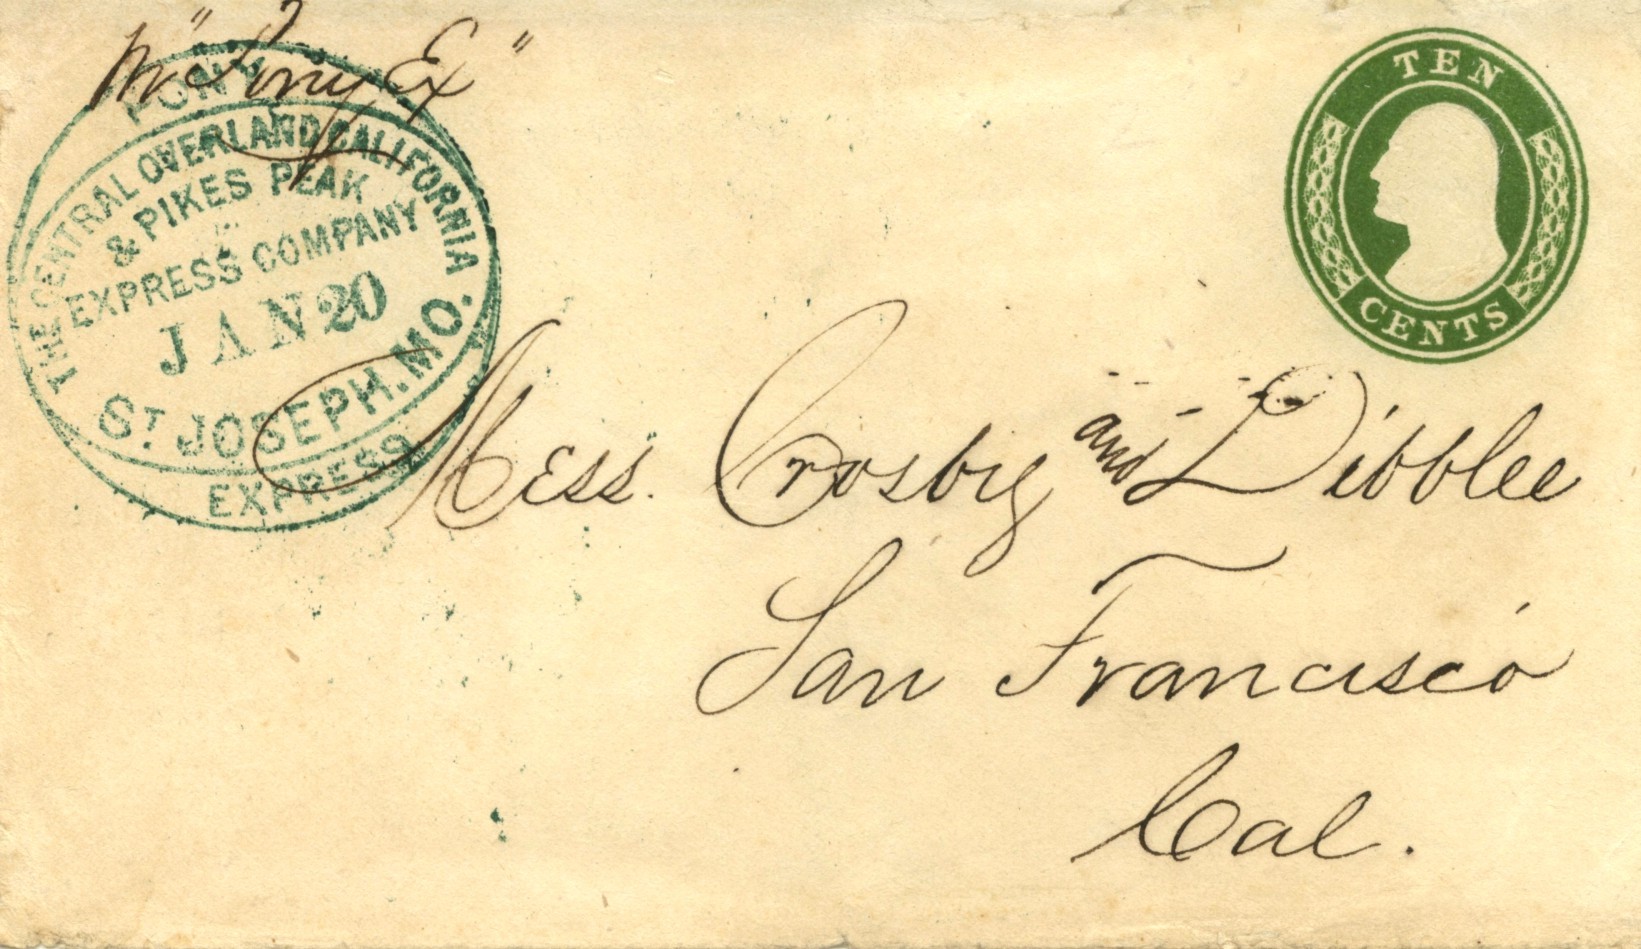 Pr "Pony Ex"
PONY
THE CENTRAL OVERLAND CALIFORNIA
& PIKES PEAK
EXPRESS COMPANY
JAN 20
ST JOSEPH. MO.
EXPRESS
TEN
CENTS
Mess. Crosby and Dibblee
San Francisco
Cal.